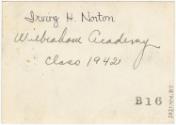 Irving H. Norton
Wilbraham Academy
Class 1942
B16